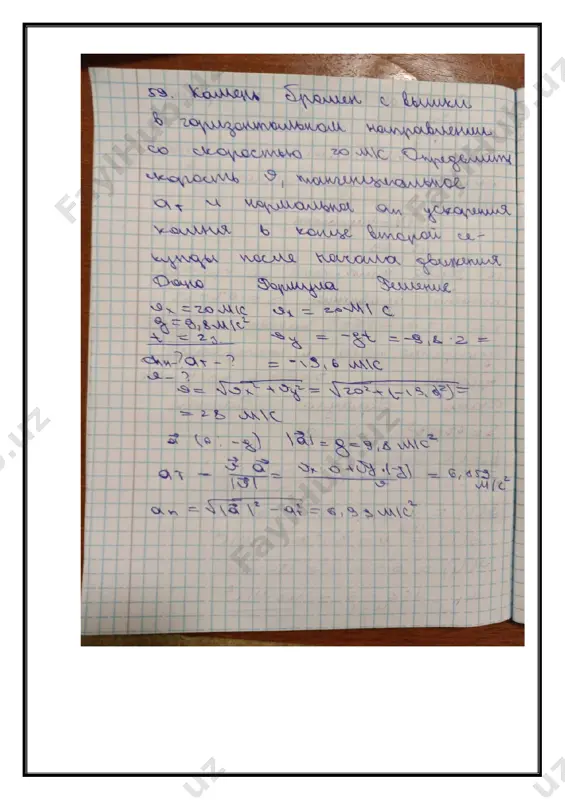 59. Камень брошен с вышки
в горизонтальном направлении
со скоростью 20 м/с. Определить
скорость υ, тангенциальное
aτ и нормальное an ускорения
камня в конце второй се-
кунды после начала движения
Дано Формула Решение
υx = 20 м/с υx = 20 м/с
g = 9,8 м/с²
t = 2 υy = -gt = -9,8 · 2 =
an-? aτ-? = -19,6 м/с
υ-?
υ = √υx² + υy² = √20² + (-19,6²) =
= 28 м/с
a⃗ (0; -g) |a⃗| = g = 9,8 м/с²
aτ = υ⃗ a⃗ / |υ⃗| = υx · 0 + υy · (-g) / υ = 6,859 м/с²
an = √|a⃗|² - aτ² = 6,99 м/с²
FaylHub.uz